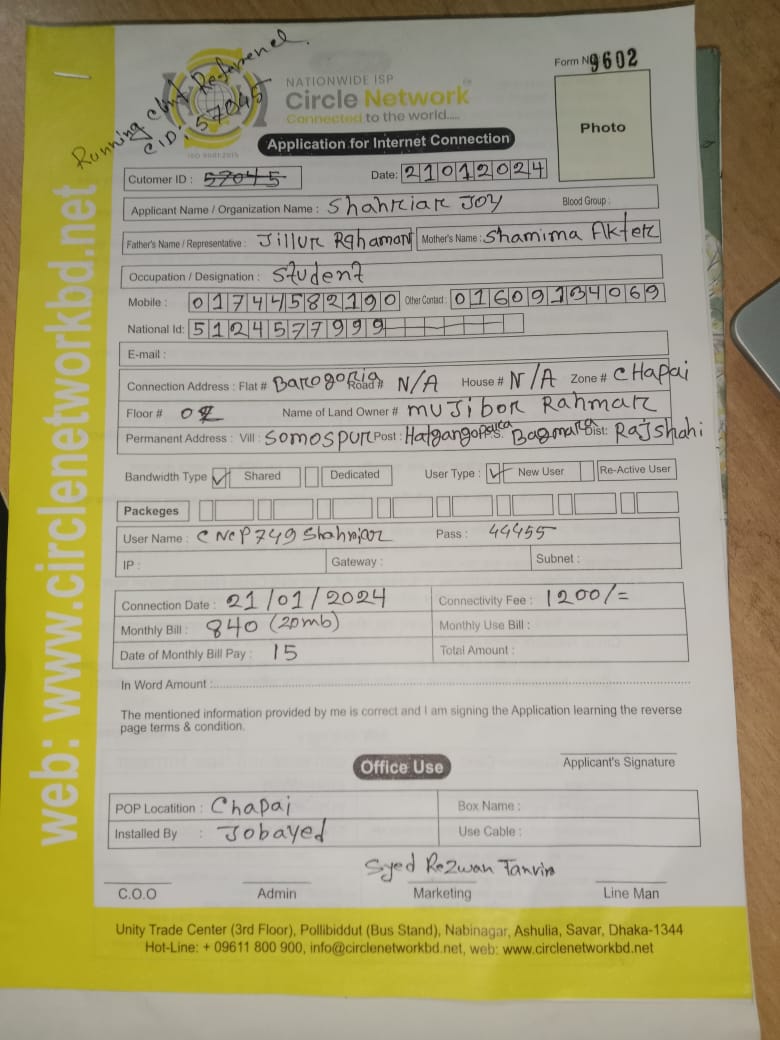 Running Client Reference.
CID: 57045
ISO 9001:2015
NATIONWIDE ISP
Circle Network
Connected to the world.....
Form No 9602
Photo
Application for Internet Connection
Cutomer ID : 57045
Date: 21012024
Applicant Name / Organization Name : Shahriar JOY Blood Group :
Father's Name / Representative : Jillur Rahaman Mother's Name : Shamima Akter
Occupation / Designation : Student
Mobile : 01744582190 Other Contact : 01609134069
National Id: 5124577999
E-mail :
Connection Address : Flat # Barogoria Road # N/A House # N/A Zone # CHapai
Floor # 02 Name of Land Owner # muJibor Rahmar
Permanent Address : Vill : Somospur Post : Hatgangopara P.S. Bagmara Dist: RaJshahi
Bandwidth Type ✓ Shared Dedicated User Type : ✓ New User Re-Active User
Packeges
User Name : CNCP749Shahriar Pass : 44455
IP : Gateway : Subnet :
Connection Date : 21/01/2024 Connectivity Fee : 1200/=
Monthly Bill : 840 (20mb) Monthly Use Bill :
Date of Monthly Bill Pay : 15 Total Amount :
In Word Amount :
The mentioned information provided by me is correct and I am signing the Application learning the reverse
page terms & condition.
Applicant's Signature
Office Use
POP Locatition : Chapai Box Name :
Installed By : Jobayed Use Cable :
Syed Rezwan Tanvir
C.O.O Admin Marketing Line Man
Unity Trade Center (3rd Floor), Pollibiddut (Bus Stand), Nabinagar, Ashulia, Savar, Dhaka-1344
Hot-Line: + 09611 800 900, info@circlenetworkbd.net, web: www.circlenetworkbd.net
web: www.circlenetworkbd.net